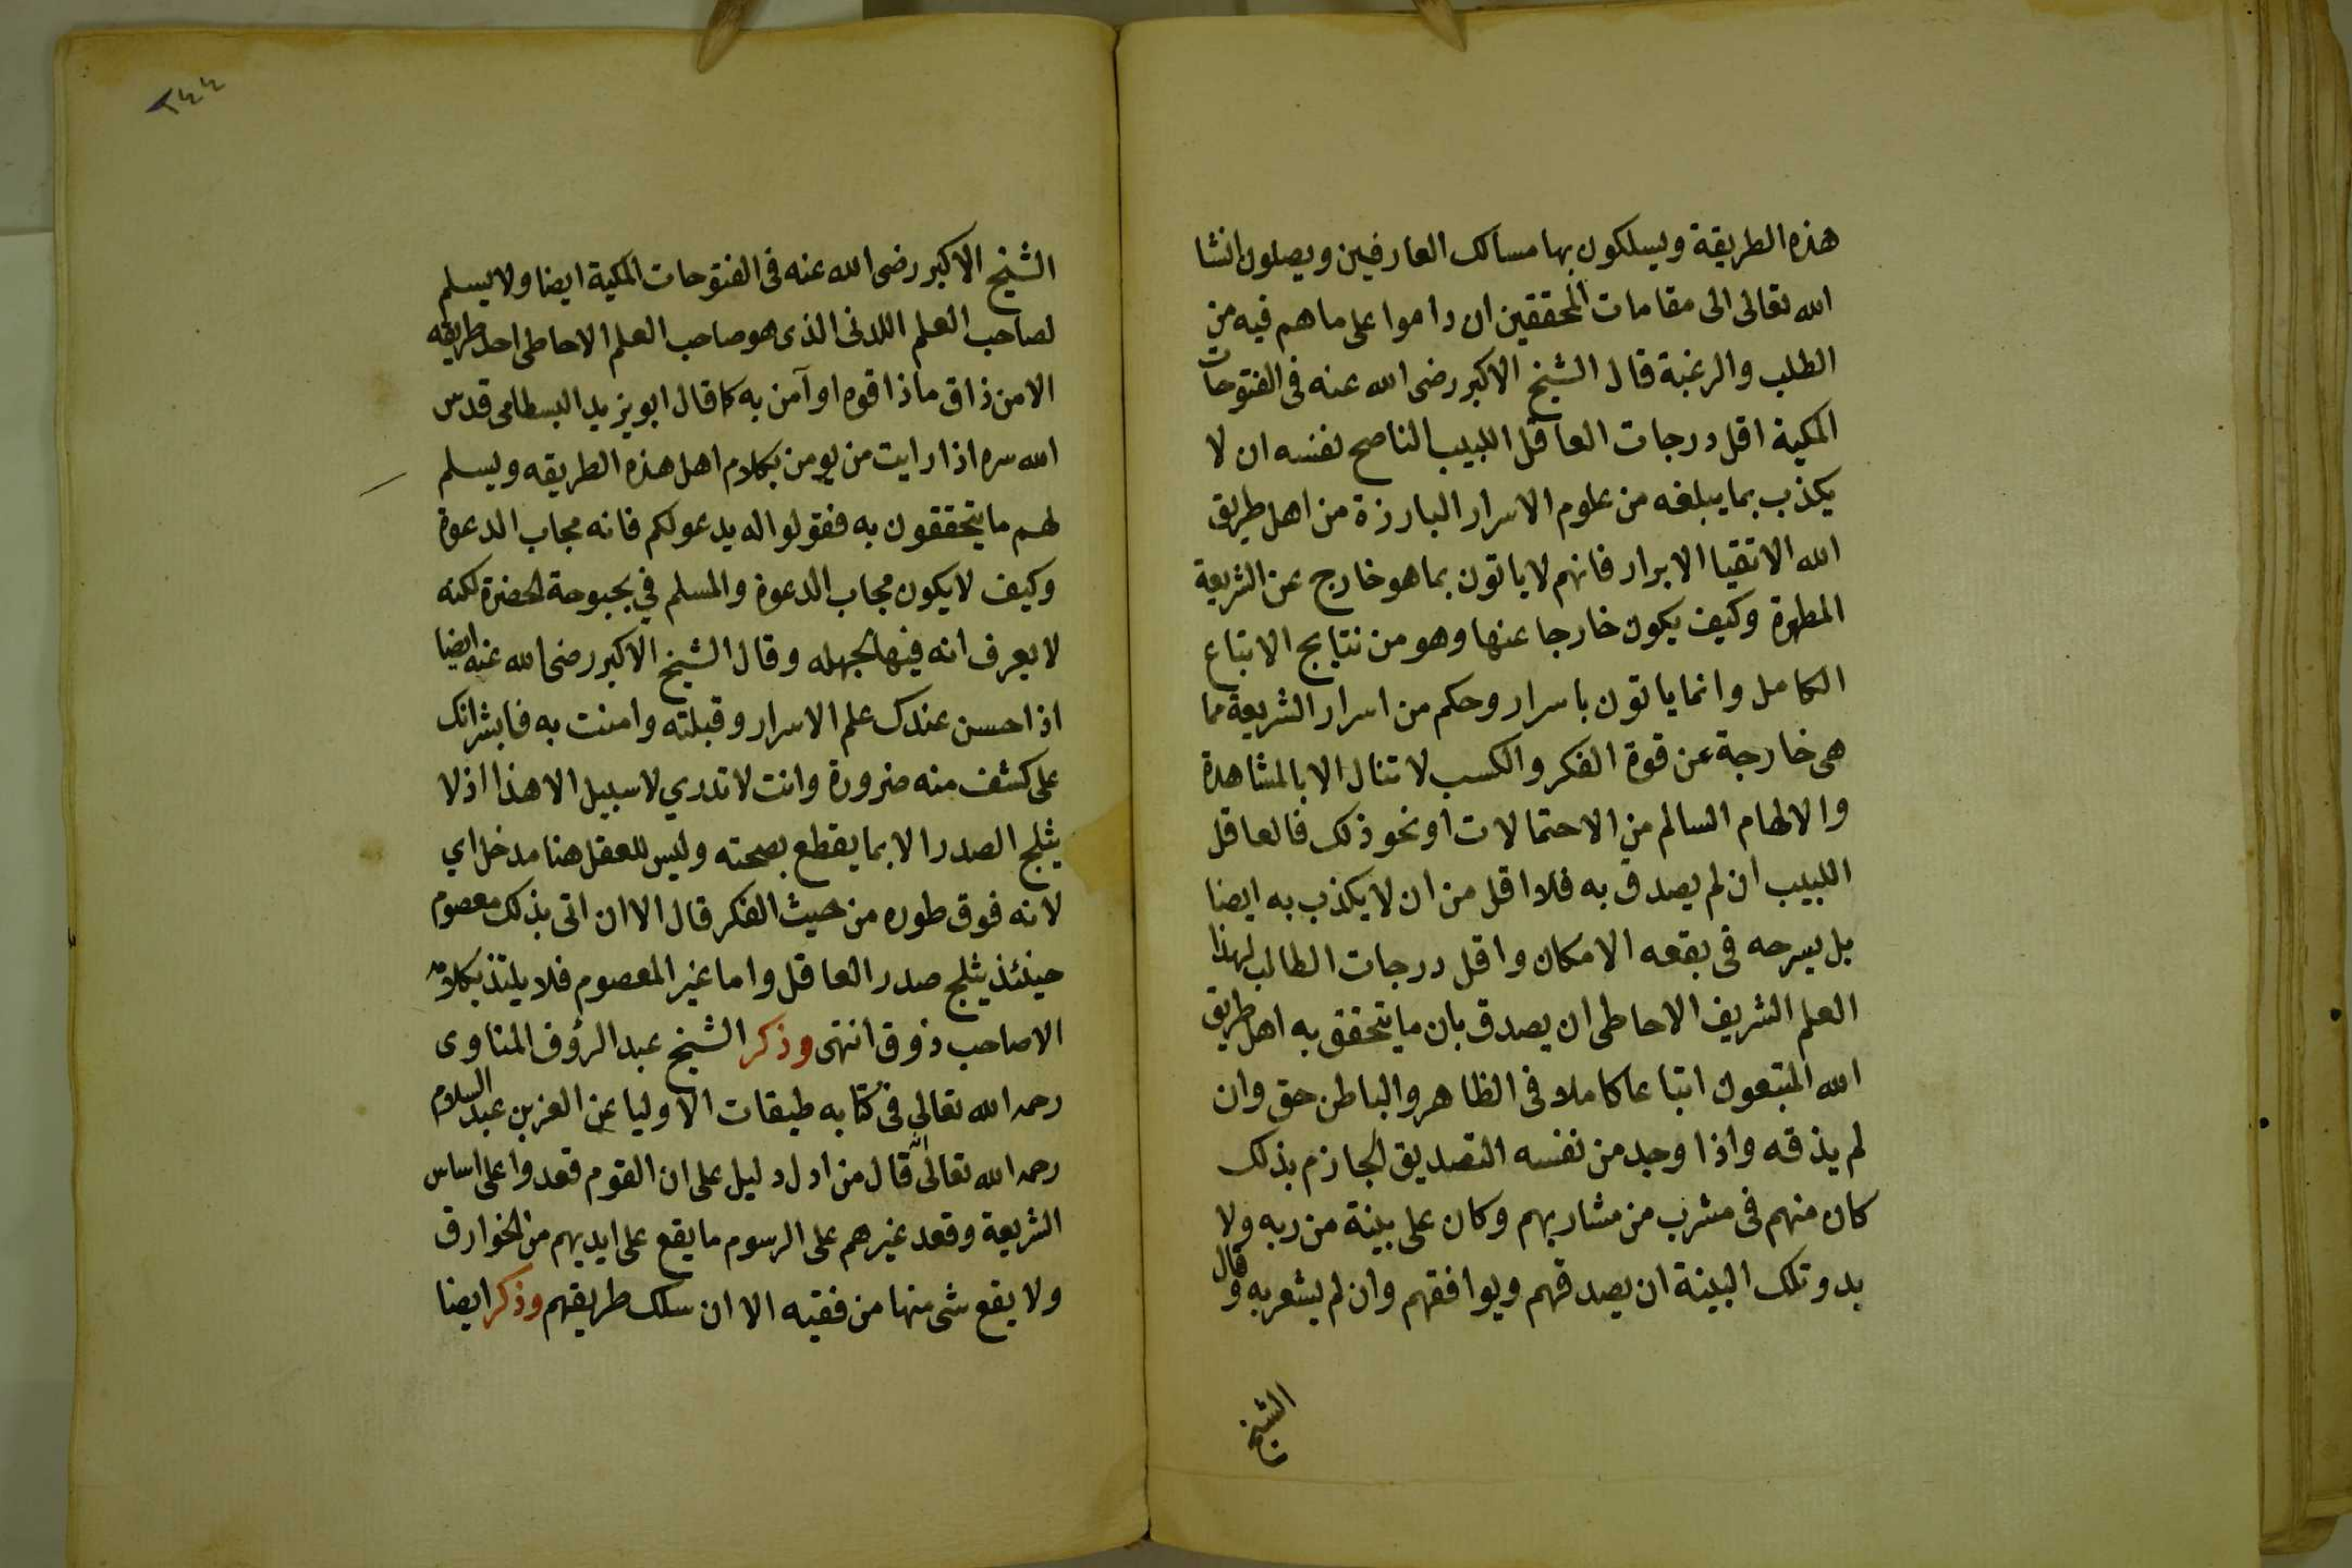 هذه الطريقة ويسلكون بها مسالك العارفين ويصلون انشا
الله تعالى الى مقامات المحققين ان داموا على ما هم فيه من
الطلب والرغبة قال الشيخ الاكبر رضى الله عنه فى الفتوحات
المكية اقل درجات العاقل اللبيب الناصح نفسه ان لا
يكذب بما يبلغه من علوم الاسرار البارزة من اهل طريق
الله الاتقيا الابرار فانهم لا ياتون بما هو خارج عن الشريعة
المطهرة وكيف يكون خارجا عنها وهو من نتايج الاتباع
الكامل وانما ياتون باسرار وحكم من اسرار الشريعة مما
هى خارجة عن قوة الفكر والكسب لا تنال الا بالمشاهدة
والالهام السالم من الاحتمالات او نحو ذلك فالعاقل
اللبيب ان لم يصدق به فلا اقل من ان لا يكذب به ايضا
بل يسرحه فى بقعه الامكان واقل درجات الطالب لهذا
العلم الشريف الاحاطى ان يصدق بان ما يتحقق به اهل طريق
الله المتبعون اتباعا كاملا فى الظاهر والباطن حق وان
لم يذقه واذا وجد من نفسه التصديق الجازم بذلك
كان منهم فى مشرب من مشاربهم وكان على بينة من ربه ولا
بد وتلك البينة ان يصدقهم ويوافقهم وان لم يشعر به وقال
الشيخ
٢٤٤
الشيخ الاكبر رضى الله عنه فى الفتوحات المكية ايضا ولا يسلم
لصاحب العلم اللدنى الذى هو صاحب العلم الاحاطى احد طريقه
الا من ذاق ما ذاقوه او آمن به كما قال ابو يزيد البسطامى قدس
الله سره اذا رايت من يومن بكلام اهل هذه الطريقه ويسلم
لهم ما يتحققون به فقولوا له يدعو لكم فانه مجاب الدعوة
وكيف لا يكون مجاب الدعوة والمسلم في بحبوحة الحضرة لكنه
لا يعرف انه فيها لجهله وقال الشيخ الاكبر رضى الله عنه ايضا
اذا حسن عندك علم الاسرار وقبلته وامنت به فابشر انك
على كشف منه ضرورة وانت لا تدري لا سبيل الا هذا اذ لا
يثلج الصدر الا بما يقطع بصحته وليس للعقل هنا مدخل اي
لانه فوق طوره من حيث الفكر قال الا ان اتى بذلك معصوم
حينئذ يثلج صدر العاقل واما غير المعصوم فلا يلتذ بكلامه
الا صاحب ذوق انتهى وذكر الشيخ عبد الرؤف المناوى
رحمه الله تعالى فى كتابه طبقات الاوليا عن العز بن عبد السلام
رحمه الله تعالى انه قال من ادل دليل على ان القوم قعدوا على اساس
الشريعة وقعد غيرهم على الرسوم ما يقع على ايديهم من الخوارق
ولا يقع شى منها من فقيه الا ان سلك طريقهم وذكر ايضا